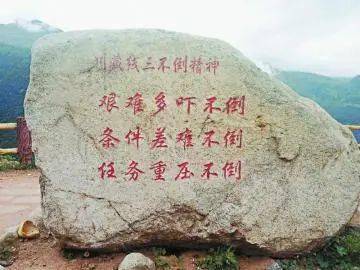 川藏线三不倒精神
艰难多吓不倒
条件差难不倒
任务重压不倒